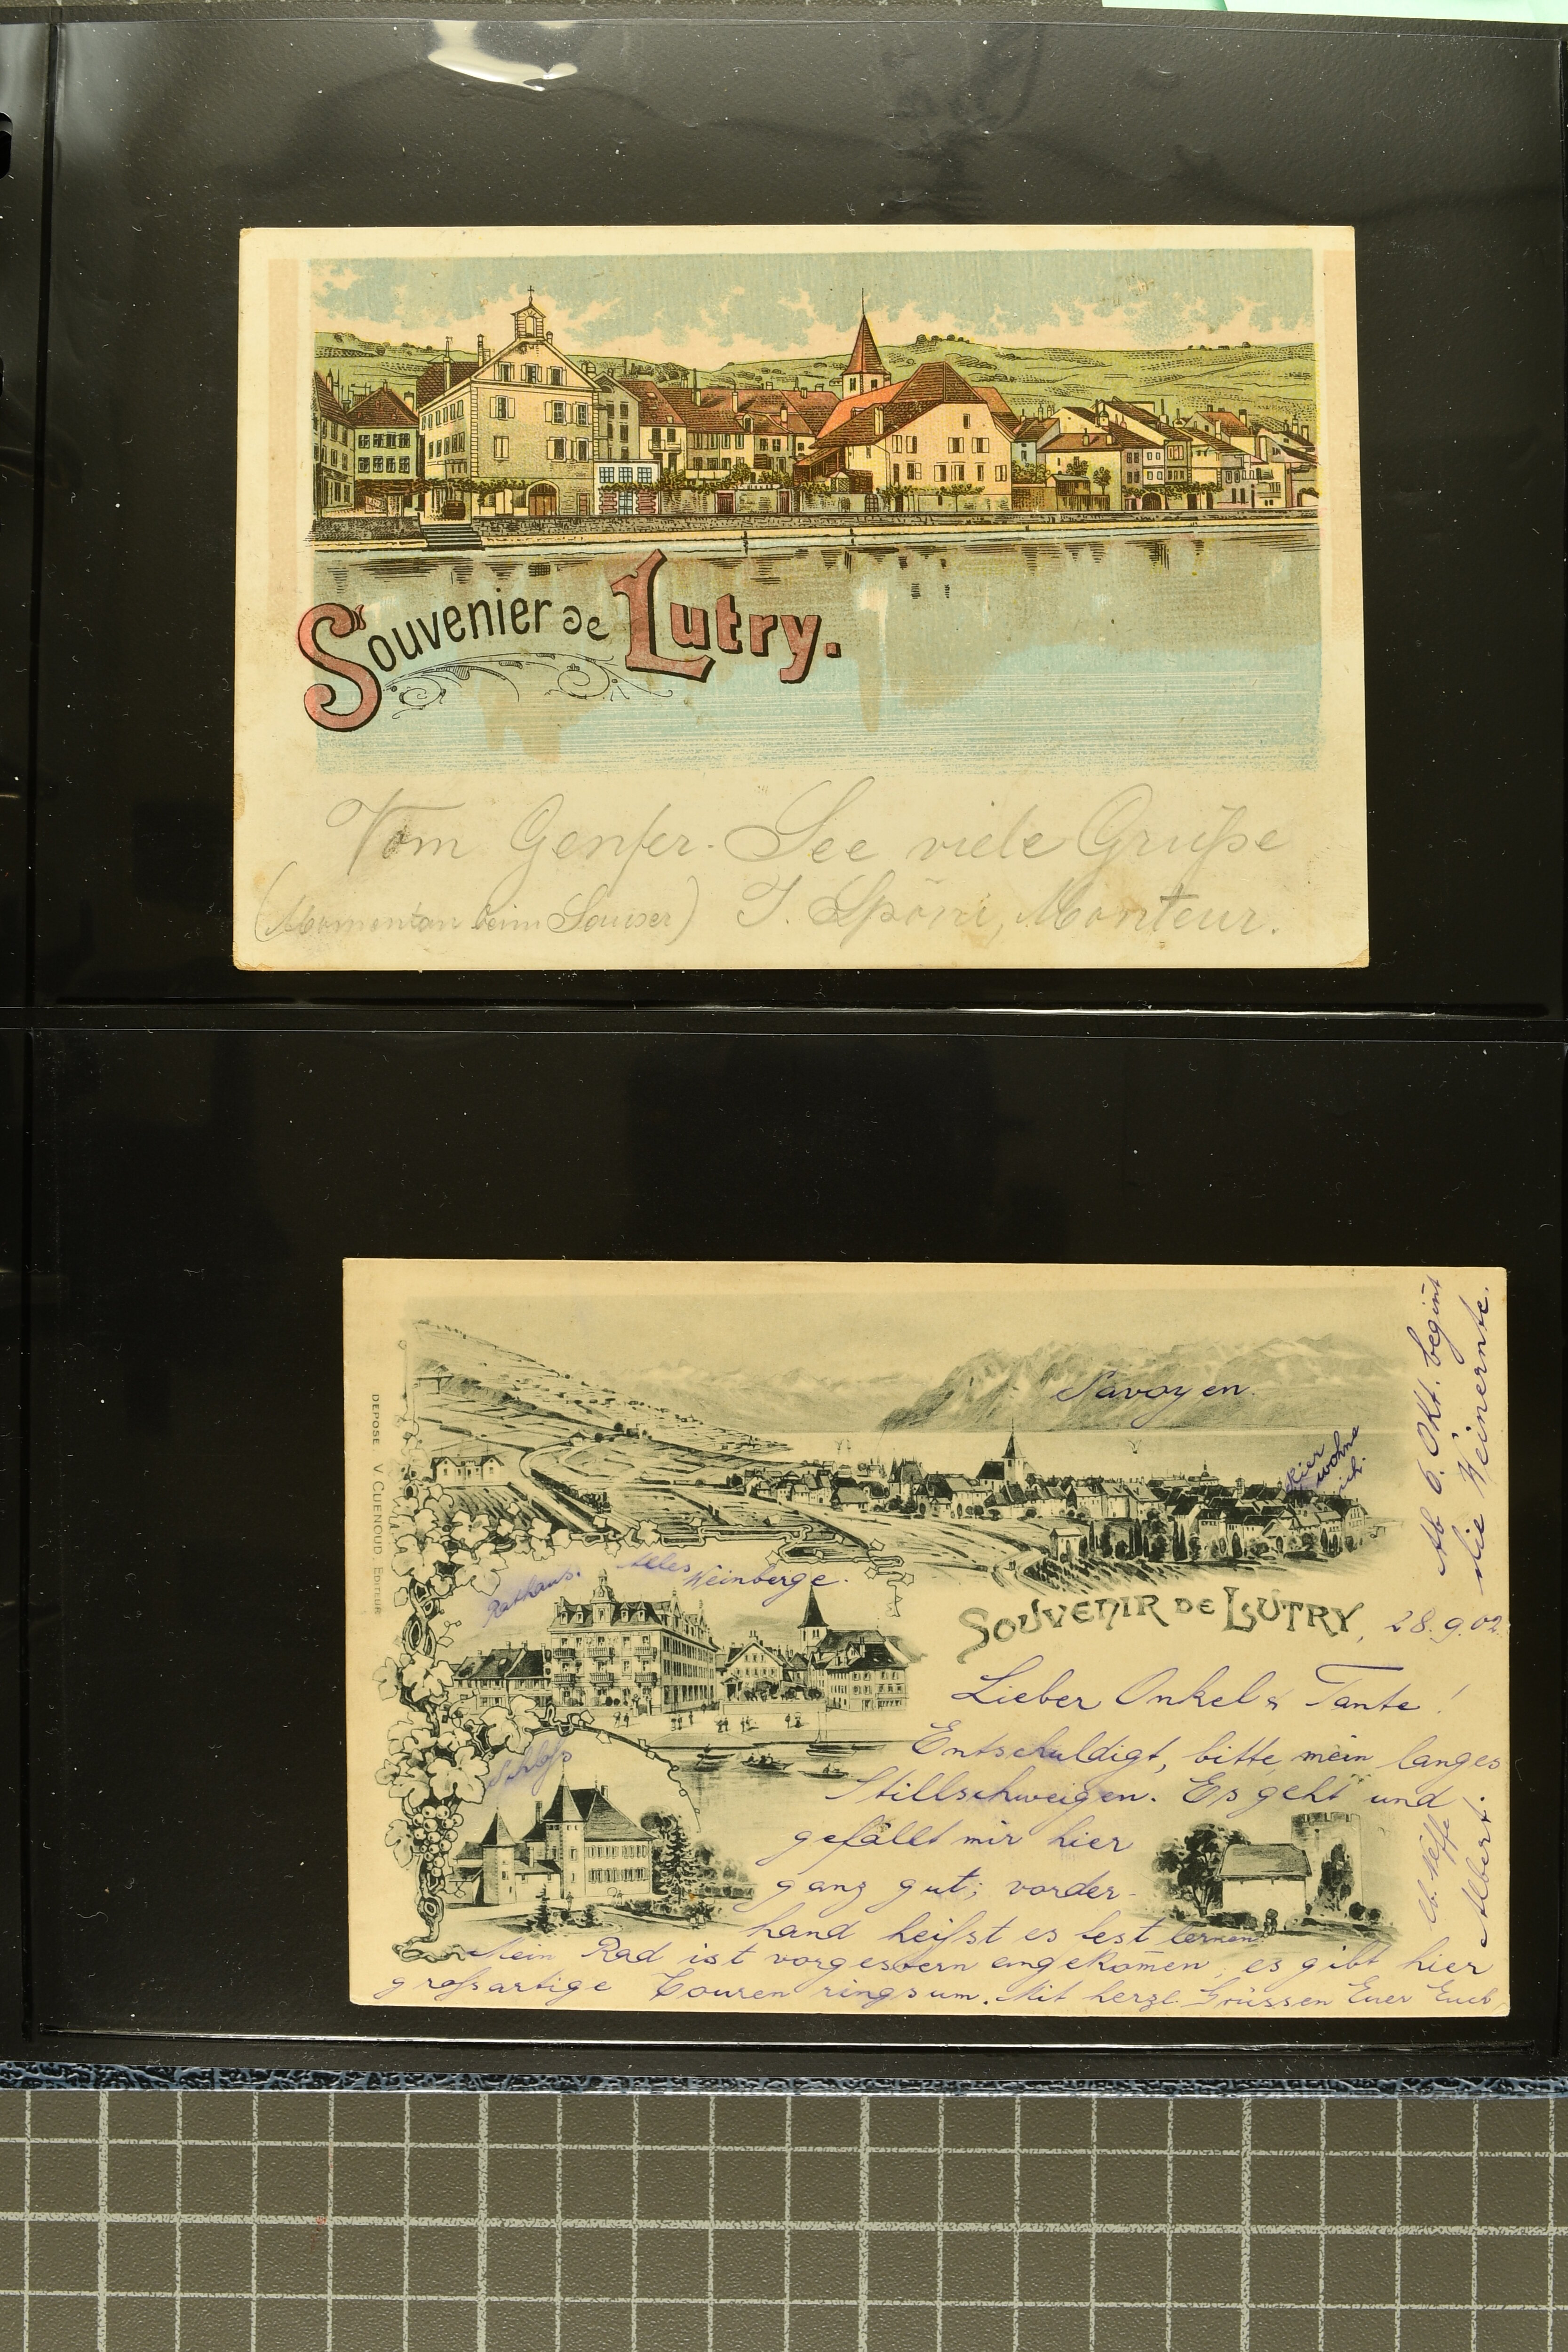 Souvenier de Lutry.
Vom Genfer-See viele Grüße
(Momentan beim Sauser) J. Spöri, Monteur.
DEPOSÉ V. CUENOUD. EDITEUR
Savoyen.
Hier
wohne
ich.
Rathaus. Alles Weinberge.
Schloß
SOUVENIR DE LUTRY, 28.9.02.
Lieber Onkel & Tante!
Entschuldigt, bitte, mein langes
Stillschweigen. Es geht und
gefällt mir hier
ganz gut; vorder-
hand heißt es fest lernen.
Mein Rad ist vorgestern angekom̄en, es gibt hier
großartige Touren ringsum. Mit herzl. Grüssen Euer Euch
lb. Neffe
Albert.
Ab 6. Okt. begin̄t
die Weinernte.